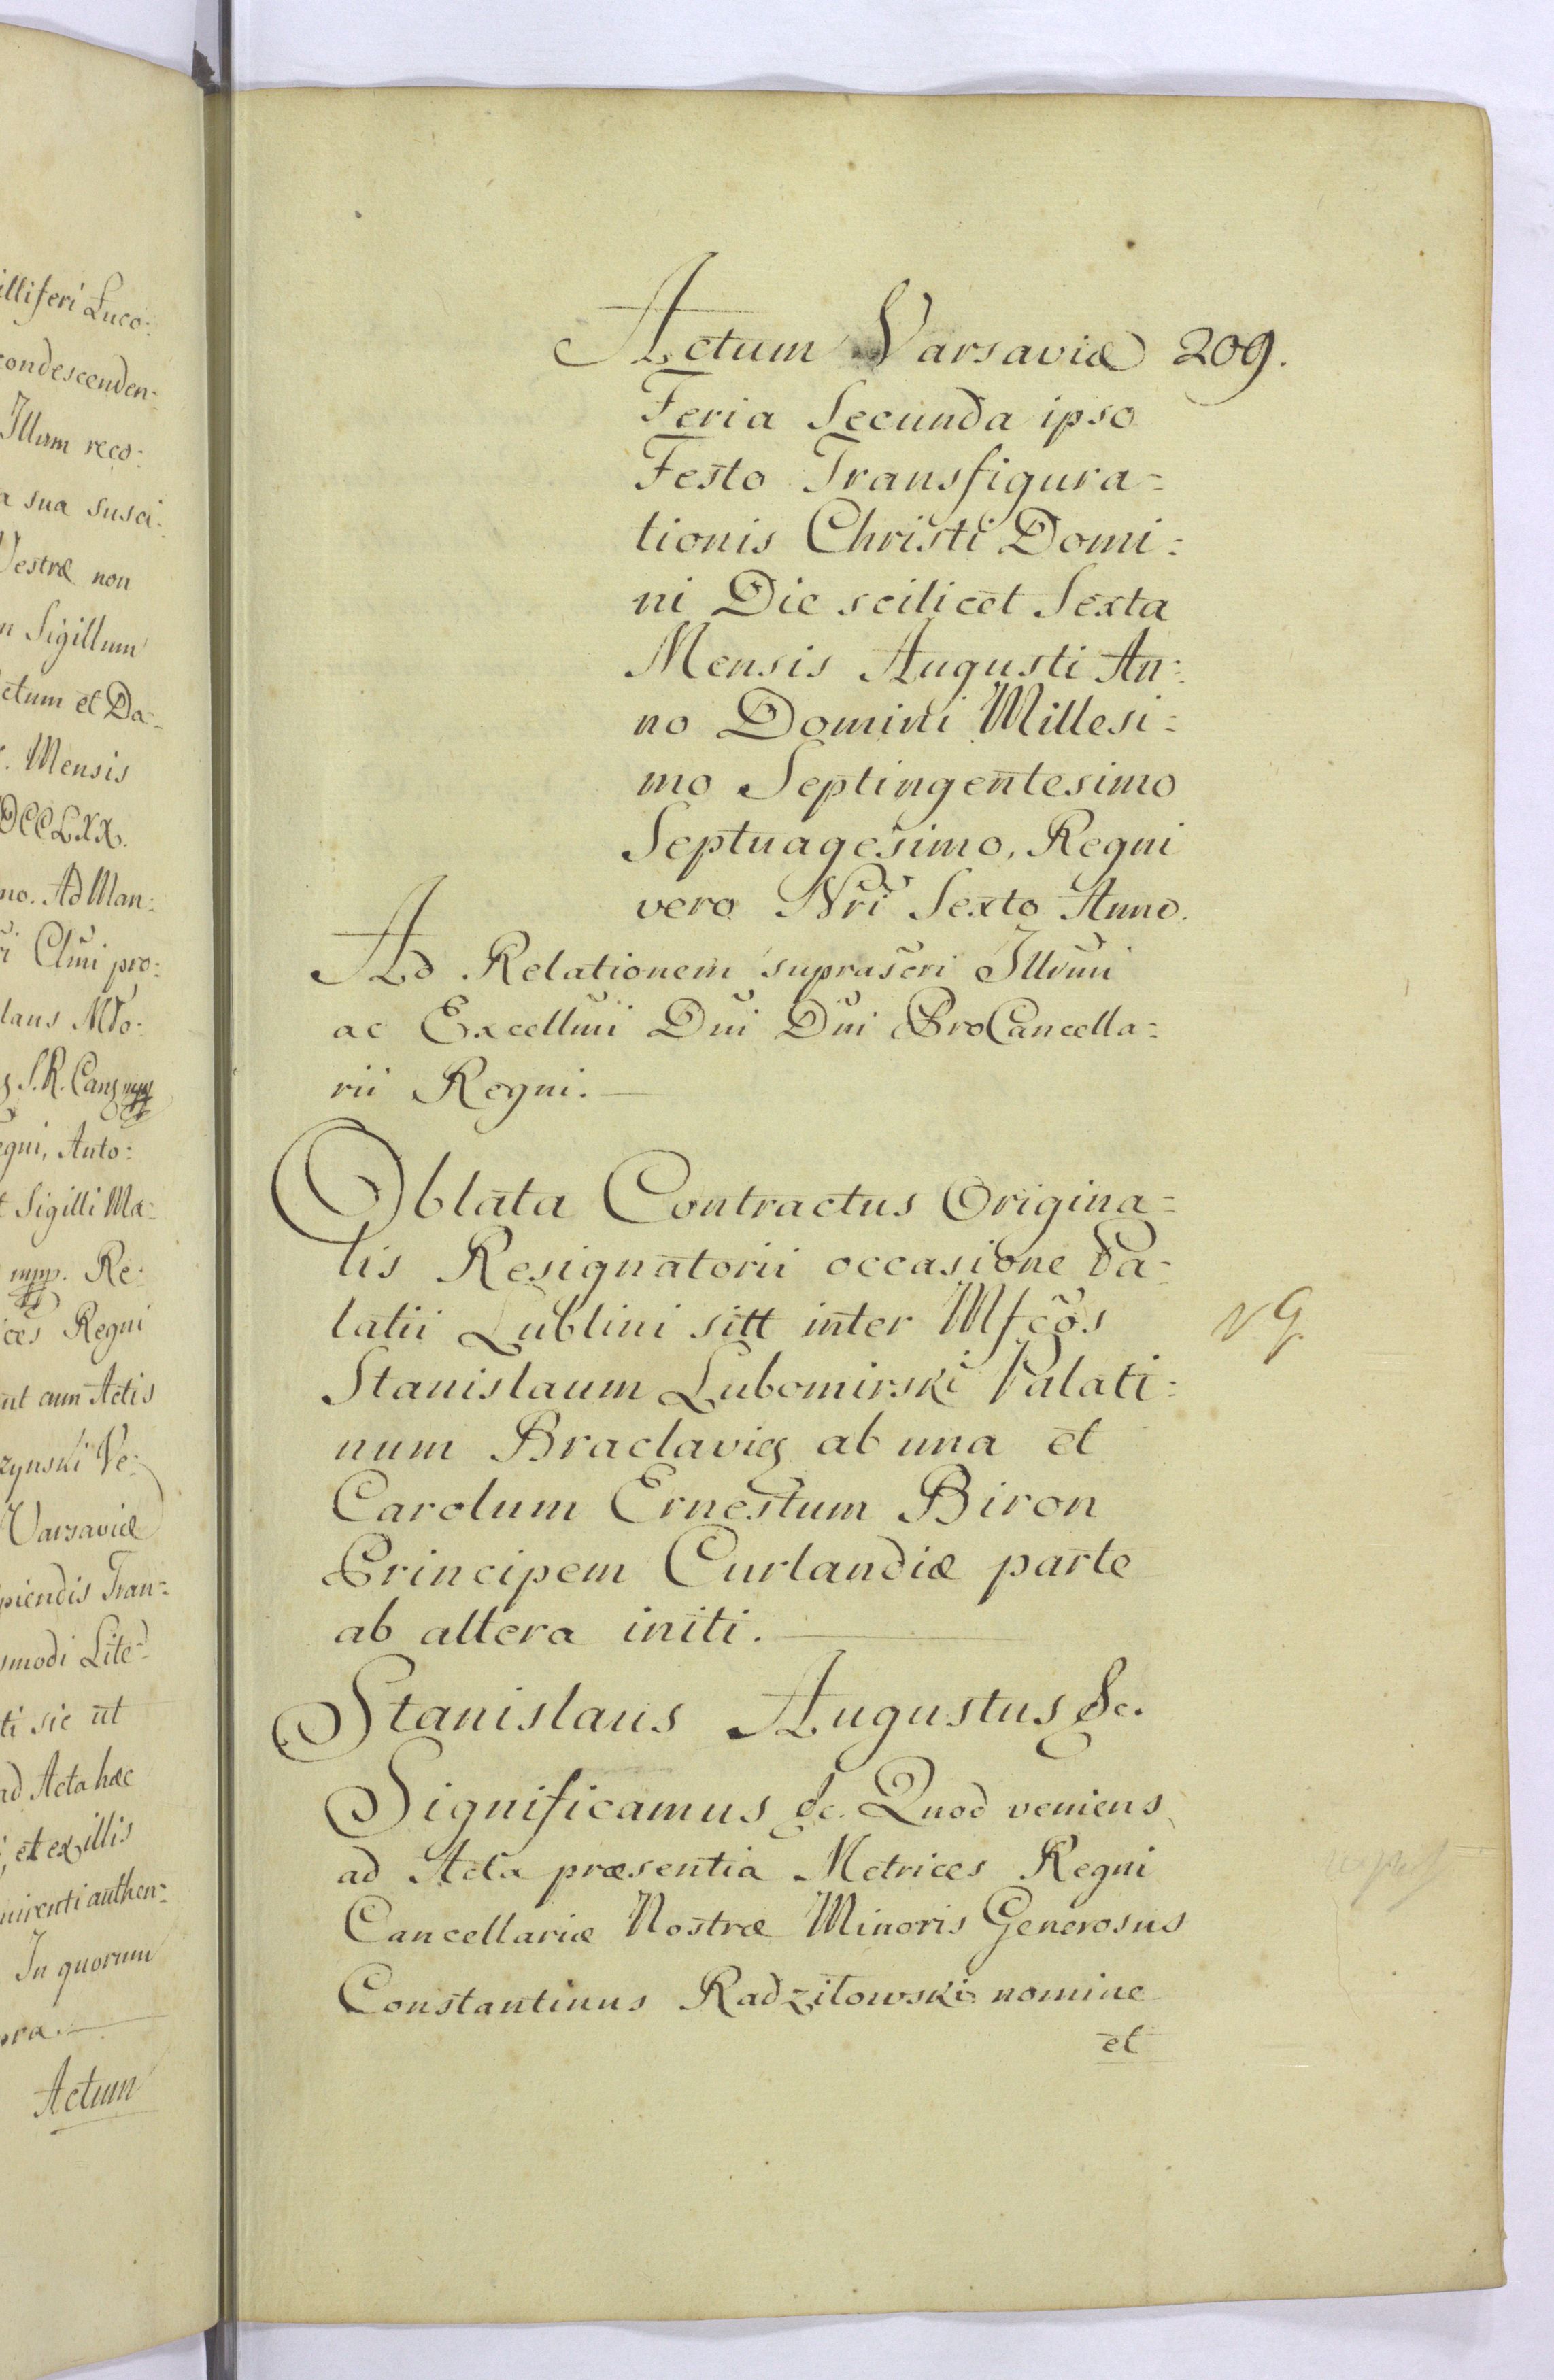 illiferi Luco:
condescenden:
Illum reco:
a sua susci:
Vestræ non
n Sigillum
ctum et Da:
Mensis
DCCLXX.
mo. Ad Man:
ri Clmi pro:
laus Mło:
S.R. Canc mpp
egni, Anto:
t Sigilli Ma:
mpp. Re:
ices Regni
unt cum Actis
zynski Ve:
Varsaviæ
piendis Tran:
smodi Lite:
ti sic ut
ad Acta hæc
, et ex illis
uirenti authen:
In quorum
pra.
Actum
Actum Varsaviæ 209.
Feria Secunda ipso
Festo Transfigura=
tionis Christi Domi:
ni Die scilicet Sexta
Mensis Augusti An:
no Domini Millesi:
mo Septingentesimo
Septuagesimo, Regni
vero Nri Sexto Anno.
Ad Relationem suprascri Illrmi
ac Excellmi Dni Dni ProCancella=
rii Regni.
Oblata Contractus Origina=
lis Resignatorii occasione Pa=
latii Lublini sitt inter Mfcos
Stanislaum Lubomirski Palati:
num Braclaviæ ab una et
Carolum Ernestum Biron
Principem Curlandiæ parte
ab altera initi.
Stanislaus Augustus &c.
Significamus &c. Quod veniens
ad Acta præsentia Metrices Regni
Cancellariæ Nostræ Minoris Generosus
Constantinus Radziłowski nomine
et